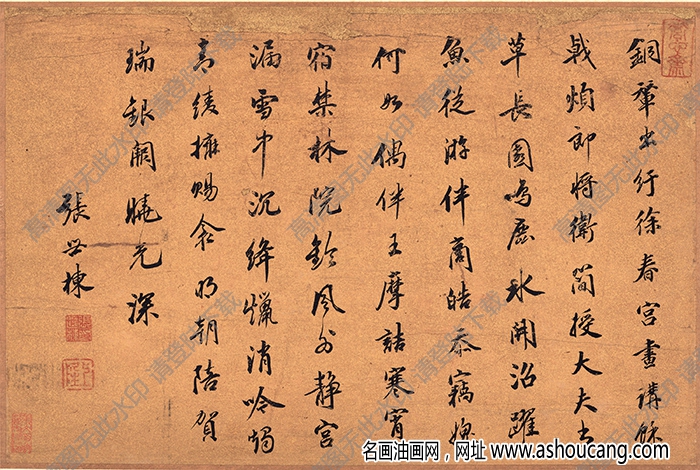 銅輦出行徐春宮晝講餘
戟煩郎將衛簡授大夫書
草長園鳴鹿冰開沼躍
魚從游伴商皓忝竊媿
何如偶伴王摩詰寒宵
宿禁林院鈴風外靜宮
漏雪中沉絳蠟消吟燭
青綾擁賜衾明朝陪賀
瑞銀闕曉光深
張棟
高清图无此水印
名画油画网，网址 www.ashoucang.com